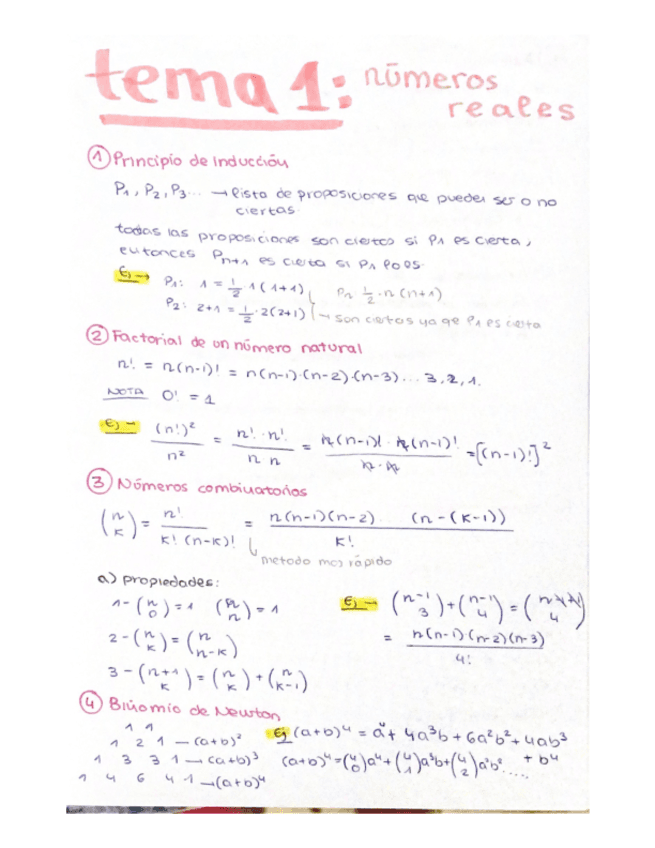 tema 1: números
reales
① Principio de inducción
P1, P2, P3... → lista de proposiciones que pueden ser o no
ciertas.
todas las proposiciones son ciertas si P1 es cierta,
entonces Pn+1 es cierta si P1 lo es.
Ej → P1: 1 = 1/2 · 1(1+1) Pn 1/2 · n(n+1)
P2: 2+1 = 1/2 · 2(2+1) → son ciertas ya que P1 es cierta
② Factorial de un número natural
n! = n(n-1)! = n(n-1)·(n-2)·(n-3)... 3, 2, 1.
NOTA 0! = 1
Ej → (n!)²/n² = n!·n!/n n = n(n-1)!·n(n-1)!/n·n = [(n-1)!]²
③ Números combinatorios
(n k) = n!/k!(n-k)! = n(n-1)(n-2) (n-(k-1))/k!
metodo mas rápido
a) propiedades:
1- (n 0) = 1 (n n) = 1
Ej → (n-1 3) + (n-1 4) = (n 4)
2- (n k) = (n n-k)
= n(n-1)(n-2)(n-3)/4!
3- (n+1 k) = (n k) + (n k-1)
④ Binomio de Newton
1 1
Ej (a+b)⁴ = a⁴ + 4a³b + 6a²b² + 4ab³
+ b⁴
1 2 1 — (a+b)²
1 3 3 1 → (a+b)³
(a+b)⁴ = (4 0)a⁴ + (4 1)a³b + (4 2)a²b² .....
1 4 6 4 1 → (a+b)⁴